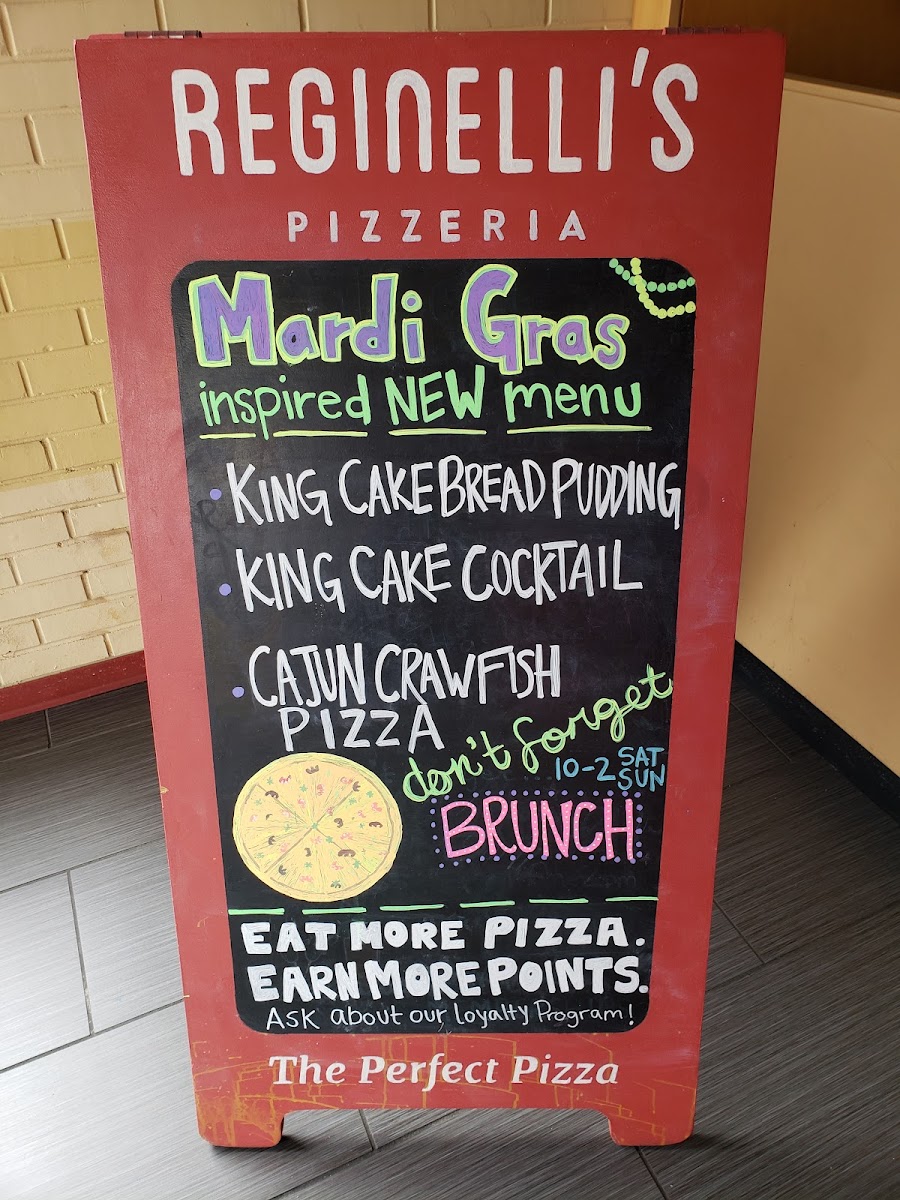 REGINELLI'S
PIZZERIA
Mardi Gras
inspired NEW menu
• KING CAKE BREAD PUDDING
• KING CAKE COCKTAIL
• CAJUN CRAWFISH
PIZZA
don't forget
10-2 SAT
SUN
BRUNCH
EAT MORE PIZZA.
EARN MORE POINTS.
ASK about our Loyalty Program!
The Perfect Pizza